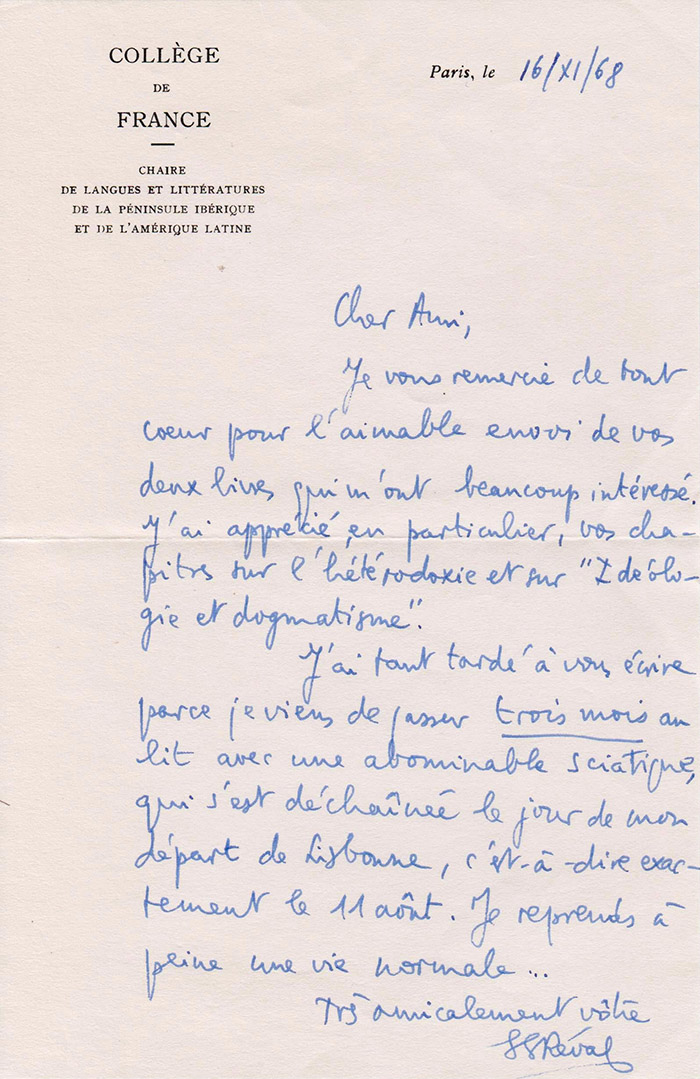 COLLÈGE
DE
FRANCE
CHAIRE
DE LANGUES ET LITTÉRATURES
DE LA PÉNINSULE IBÉRIQUE
ET DE L'AMÉRIQUE LATINE
Paris, le 16/XI/68
Cher Ami,
Je vous remercie de tout
coeur pour l'aimable envoi de vos
deux livres qui m'ont beaucoup intéressé.
J'ai apprécié, en particulier, vos cha-
pitres sur l'hétérodoxie et sur "Idéolo-
gie et dogmatisme".
J'ai tant tardé à vous écrire
parce je viens de passer trois mois au
lit avec une abominable sciatique,
qui s'est déchaînée le jour de mon
départ de Lisbonne, c'est-à-dire exac-
tement le 11 août. Je reprends à
peine une vie normale...
Très amicalement vôtre